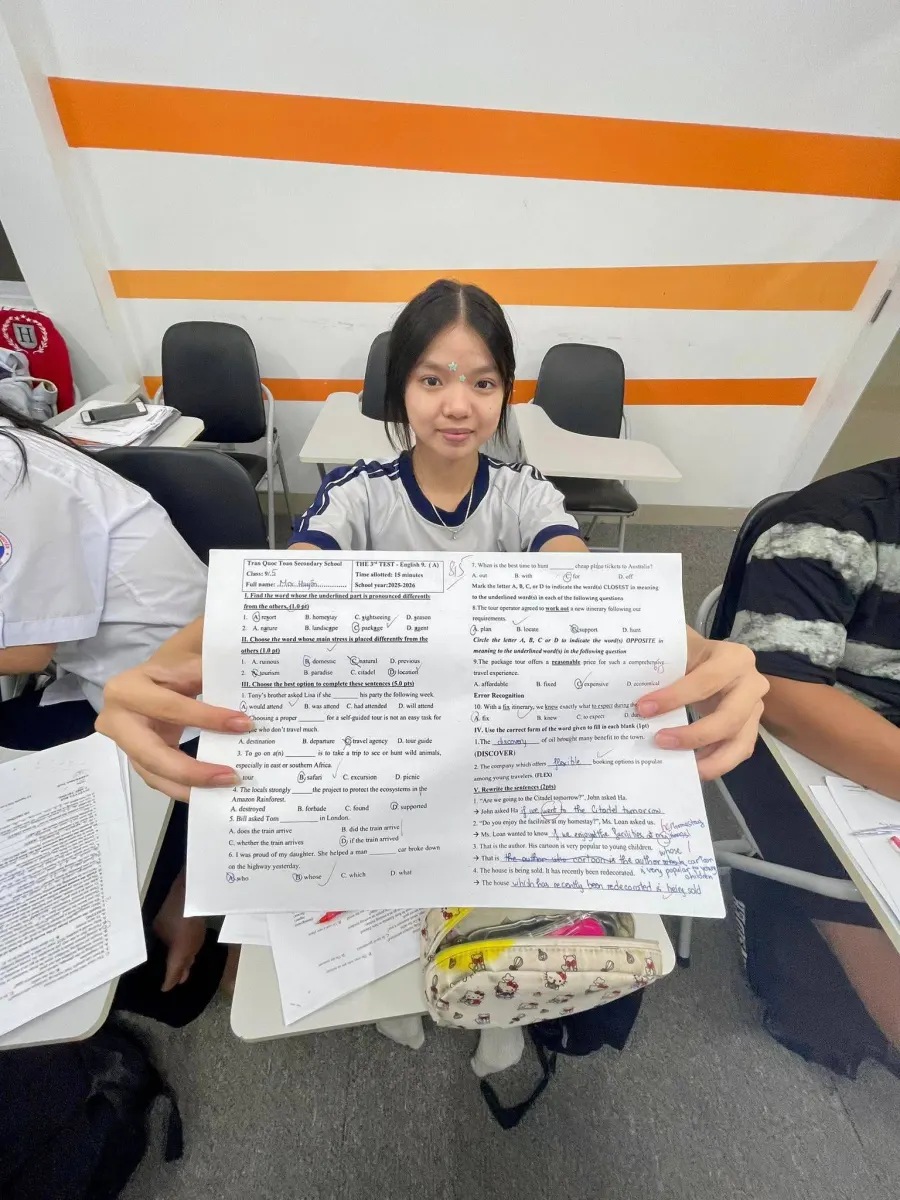 H
Tran Quoc Tuan Secondary School
Class: 9/5
Full name:
THE 3rd TEST - English 9. ( A)
Time allotted: 15 minutes
School year:2025-2026
I. Find the word whose the underlined part is pronounced differently
from the others. (1.0 pt)
1. A. resort B. homestay C. sightseeing D. season
2. A. nature B. landscape C. package D. agent
II. Choose the word whose main stress is placed differently from the
others (1.0 pt)
1. A. ruinous B. domestic C. natural D. previous
2. A. tourism B. paradise C. citadel D. location
III. Choose the best option to complete these sentences (5.0 pts)
1. Tony's brother asked Lisa if she ______ his party the following week.
A. would attend B. was attend C. had attended D. will attend
2. Choosing a proper ______ for a self-guided tour is not an easy task for
who don't travel much.
A. destination B. departure C. travel agency D. tour guide
3. To go on a(n) ______ is to take a trip to see or hunt wild animals,
especially in east or southern Africa.
tour B. safari C. excursion D. picnic
4. The locals strongly ______ the project to protect the ecosystems in the
Amazon Rainforest.
A. destroyed B. forbade C. found D. supported
5. Bill asked Tom ______ in London.
A. does the train arrive B. did the train arrive
C. whether the train arrives D. if the train arrived
6. I was proud of my daughter. She helped a man ______ car broke down
on the highway yesterday.
A. who B. whose C. which D. what
7. When is the best time to hunt ______ cheap plane tickets to Australia?
A. out B. with C. for D. off
Mark the letter A, B, C, or D to indicate the word(s) CLOSEST in meaning
to the underlined word(s) in each of the following questions
8.The tour operator agreed to work out a new itinerary following our
requirements.
A. plan B. locate C. support D. hunt
Circle the letter A, B, C or D to indicate the word(s) OPPOSITE in
meaning to the underlined word(s) in the following question
9.The package tour offers a reasonable price for such a comprehensive
travel experience.
A. affordable B. fixed C. expensive D. economical
Error Recognition
10. With a fix itinerary, we knew exactly what to expect during the
A. fix B. knew C. to expect
IV. Use the correct form of the word given to fill in each blank (1pt)
1. The discovery of oil brought many benefit to the town.
(DISCOVER)
2. The company which offers flexible booking options is popular
among young travelers. (FLEX)
V. Rewrite the sentences (2pts)
1. "Are we going to the Citadel tomorrow?", John asked Ha.
→ John asked Ha if we went to the Citadel tomorrow
2. "Do you enjoy the facilities at my homestay?", Ms. Loan asked us.
→ Ms. Loan wanted to know if we enjoyed the facilities at my
3. That is the author. His cartoon is very popular to young children.
whose
→ That is the author who cartoon is the author cartoon
is very popular to young
children
4. The house is being sold. It has recently been redecorated.
→ The house which has recently been redecorated is being sold